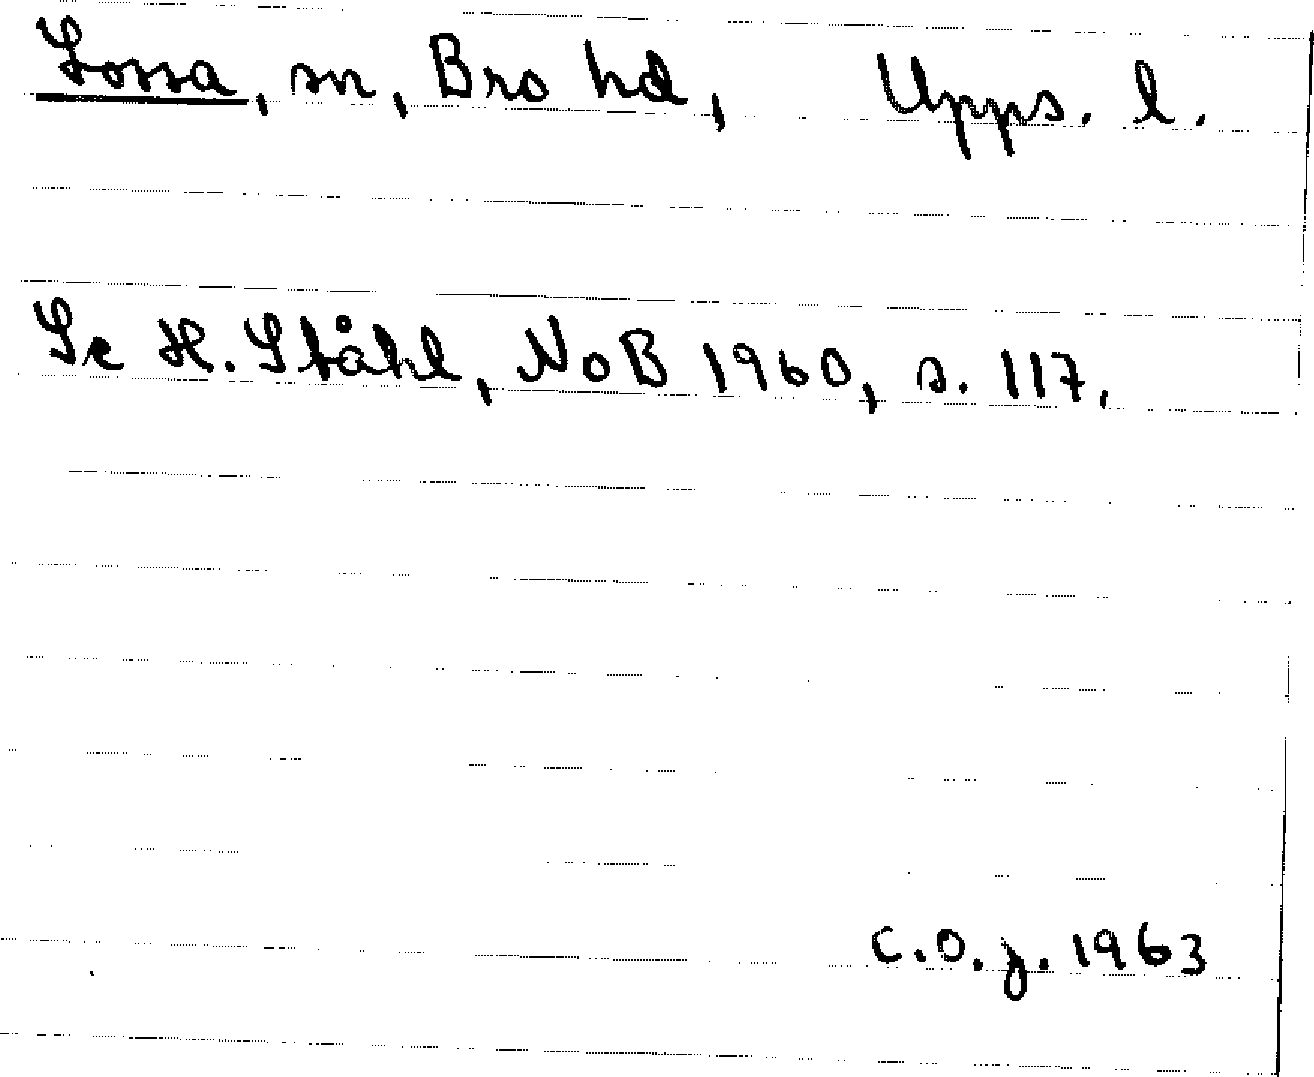 Lossa, sn, Bro hd, Upps. l.
Se H. Ståhl, NoB 1960, s. 117.
C.O.J. 1963